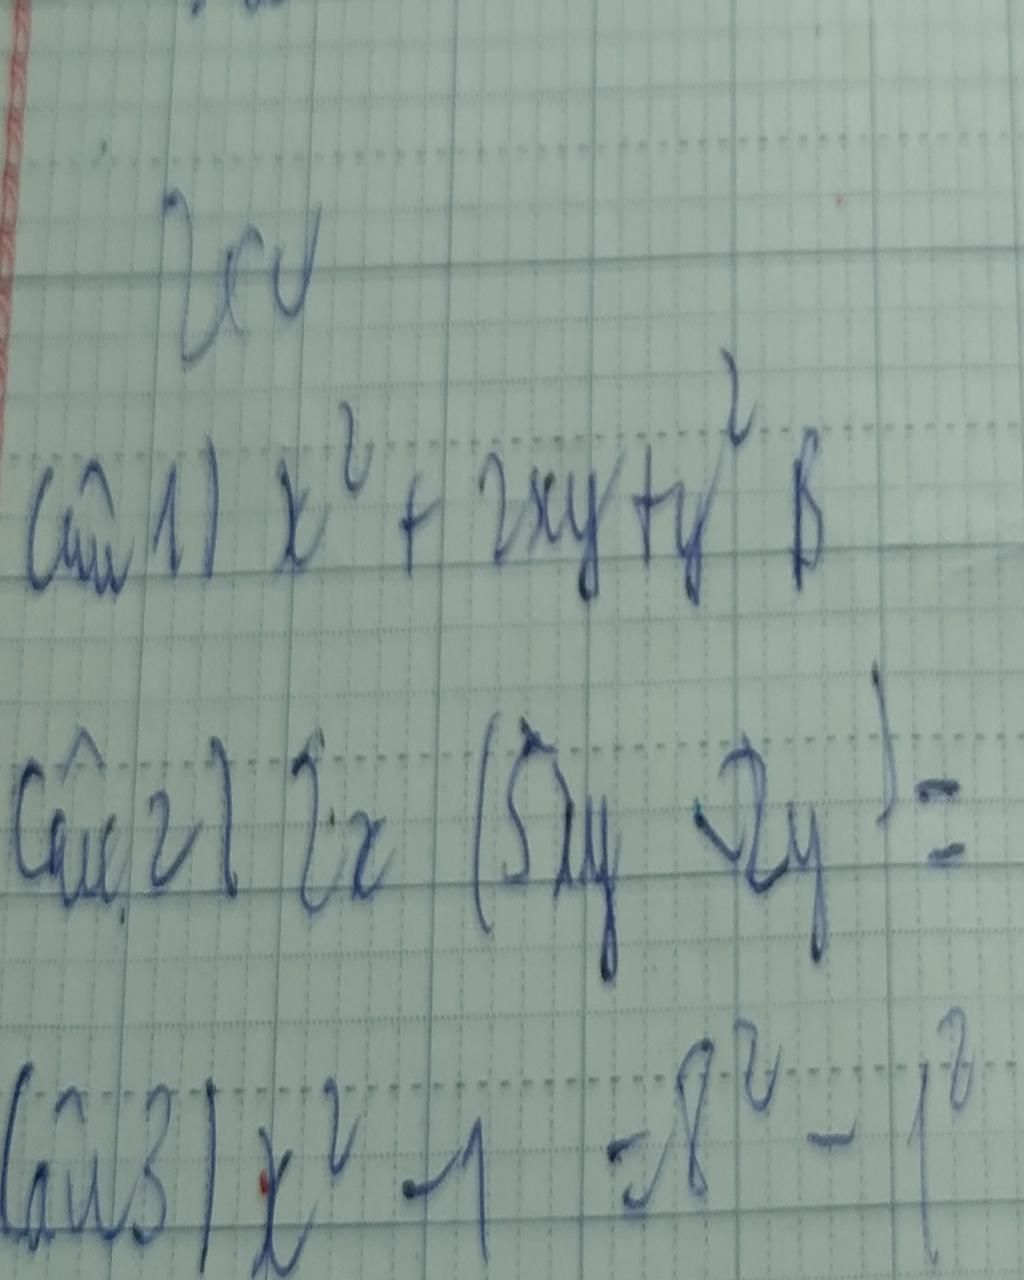 Câu 1) x² + 2xy + y² B
Câu 2) 2x (5xy - 2y) =
Câu 3) x² - 1 = 8² - 1²